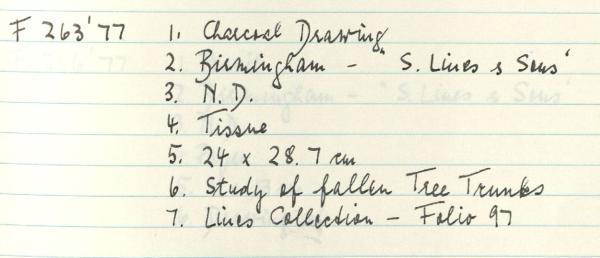 F 263'77 1. Charcoal Drawing
2. Birmingham - "S. Lines & Sons'
3. N.D.
4. Tissue
5. 24 x 28.7 cm
6. Study of fallen Tree Trunks
7. Lines Collection - Folio 97